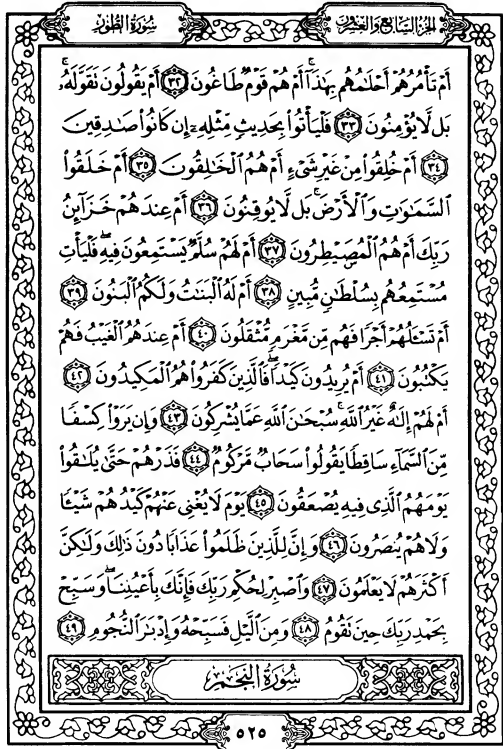 سُورَةُ الطُّورِ
الجُزءُ السَّابِعُ وَالعِشرُونَ
أَمْ تَأْمُرُهُمْ أَحْلَٰمُهُم بِهَٰذَآ ۚ أَمْ هُمْ قَوْمٌ طَاغُونَ ٣٢ أَمْ يَقُولُونَ تَقَوَّلَهُۥ ۚ
بَل لَّا يُؤْمِنُونَ ٣٣ فَلْيَأْتُوا۟ بِحَدِيثٍ مِّثْلِهِۦٓ إِن كَانُوا۟ صَٰدِقِينَ
٣٤ أَمْ خُلِقُوا۟ مِنْ غَيْرِ شَىْءٍ أَمْ هُمُ ٱلْخَٰلِقُونَ ٣٥ أَمْ خَلَقُوا۟
ٱلسَّمَٰوَٰتِ وَٱلْأَرْضَ ۚ بَل لَّا يُوقِنُونَ ٣٦ أَمْ عِندَهُمْ خَزَآئِنُ
رَبِّكَ أَمْ هُمُ ٱلْمُصَۣيْطِرُونَ ٣٧ أَمْ لَهُمْ سُلَّمٌ يَسْتَمِعُونَ فِيهِ ۖ فَلْيَأْتِ
مُسْتَمِعُهُم بِسُلْطَٰنٍ مُّبِينٍ ٣٨ أَمْ لَهُ ٱلْبَنَٰتُ وَلَكُمُ ٱلْبَنُونَ ٣٩
أَمْ تَسْـَٔلُهُمْ أَجْرًا فَهُم مِّن مَّغْرَمٍ مُّثْقَلُونَ ٤٠ أَمْ عِندَهُمُ ٱلْغَيْبُ فَهُمْ
يَكْتُبُونَ ٤١ أَمْ يُرِيدُونَ كَيْدًا ۖ فَٱلَّذِينَ كَفَرُوا۟ هُمُ ٱلْمَكِيدُونَ ٤٢
أَمْ لَهُمْ إِلَٰهٌ غَيْرُ ٱللَّهِ ۚ سُبْحَٰنَ ٱللَّهِ عَمَّا يُشْرِكُونَ ٤٣ وَإِن يَرَوْا۟ كِسْفًا
مِّنَ ٱلسَّمَآءِ سَاقِطًا يَقُولُوا۟ سَحَابٌ مَّرْكُومٌ ٤٤ فَذَرْهُمْ حَتَّىٰ يُلَٰقُوا۟
يَوْمَهُمُ ٱلَّذِى فِيهِ يُصْعَقُونَ ٤٥ يَوْمَ لَا يُغْنِى عَنْهُمْ كَيْدُهُمْ شَيْـًٔا
وَلَا هُمْ يُنصَرُونَ ٤٦ وَإِنَّ لِلَّذِينَ ظَلَمُوا۟ عَذَابًا دُونَ ذَٰلِكَ وَلَٰكِنَّ
أَكْثَرَهُمْ لَا يَعْلَمُونَ ٤٧ وَٱصْبِرْ لِحُكْمِ رَبِّكَ فَإِنَّكَ بِأَعْيُنِنَا ۖ وَسَبِّحْ
بِحَمْدِ رَبِّكَ حِينَ تَقُومُ ٤٨ وَمِنَ ٱلَّيْلِ فَسَبِّحْهُ وَإِدْبَٰرَ ٱلنُّجُومِ ٤٩
سُورَةُ النَّجْمِ
٥٢٥